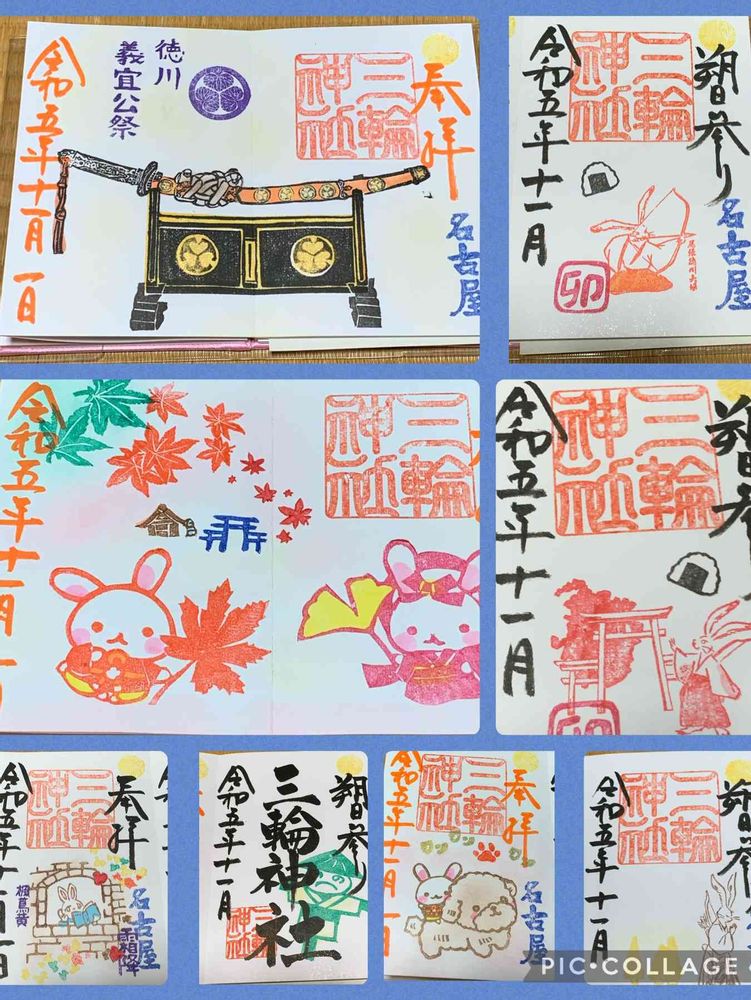 奉拝
名古屋
三輪
神社
徳川
義宜公祭
令和五年十一月一日
朔日参り
名古屋
三輪
神社
卯
令和五年十一月
三輪
神社
令和五年十一月一日
三輪
神社
卯
令和五年十一月
奉拝
名古屋
霜降
三輪
神社
楓蔦黄
令和五年十一月一日
朔日参り
三輪神社
三輪
神社
令和五年十一月
奉拝
名古屋
三輪
神社
ワン
ワン
令和五年十一月一日
朔日参
三輪
神社
令和五年十一月
PIC•COLLAGE